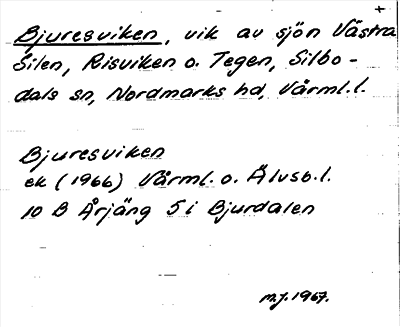 +
Bjuresviken, vik av sjön Västra
Silen, Risviken o. Tegen, Silbo-
dals sn, Nordmarks hd, Värml.l.
Bjuresviken
ek (1966) Värml. o. Älvsb.l.
10 B Årjäng 5 i Bjurdalen
m.j. 1967.